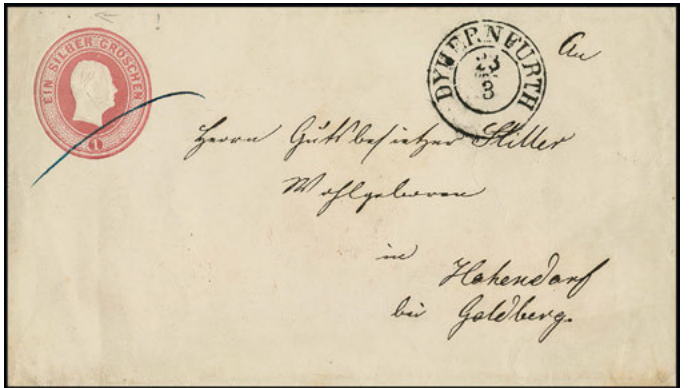 EIN SILBER GROSCHEN
1
DYHERNFURTH
23
8
An
Herrn Gutsbesitzer Stiller
Wohlgeboren
in
Hohendorf
bei Goldberg.